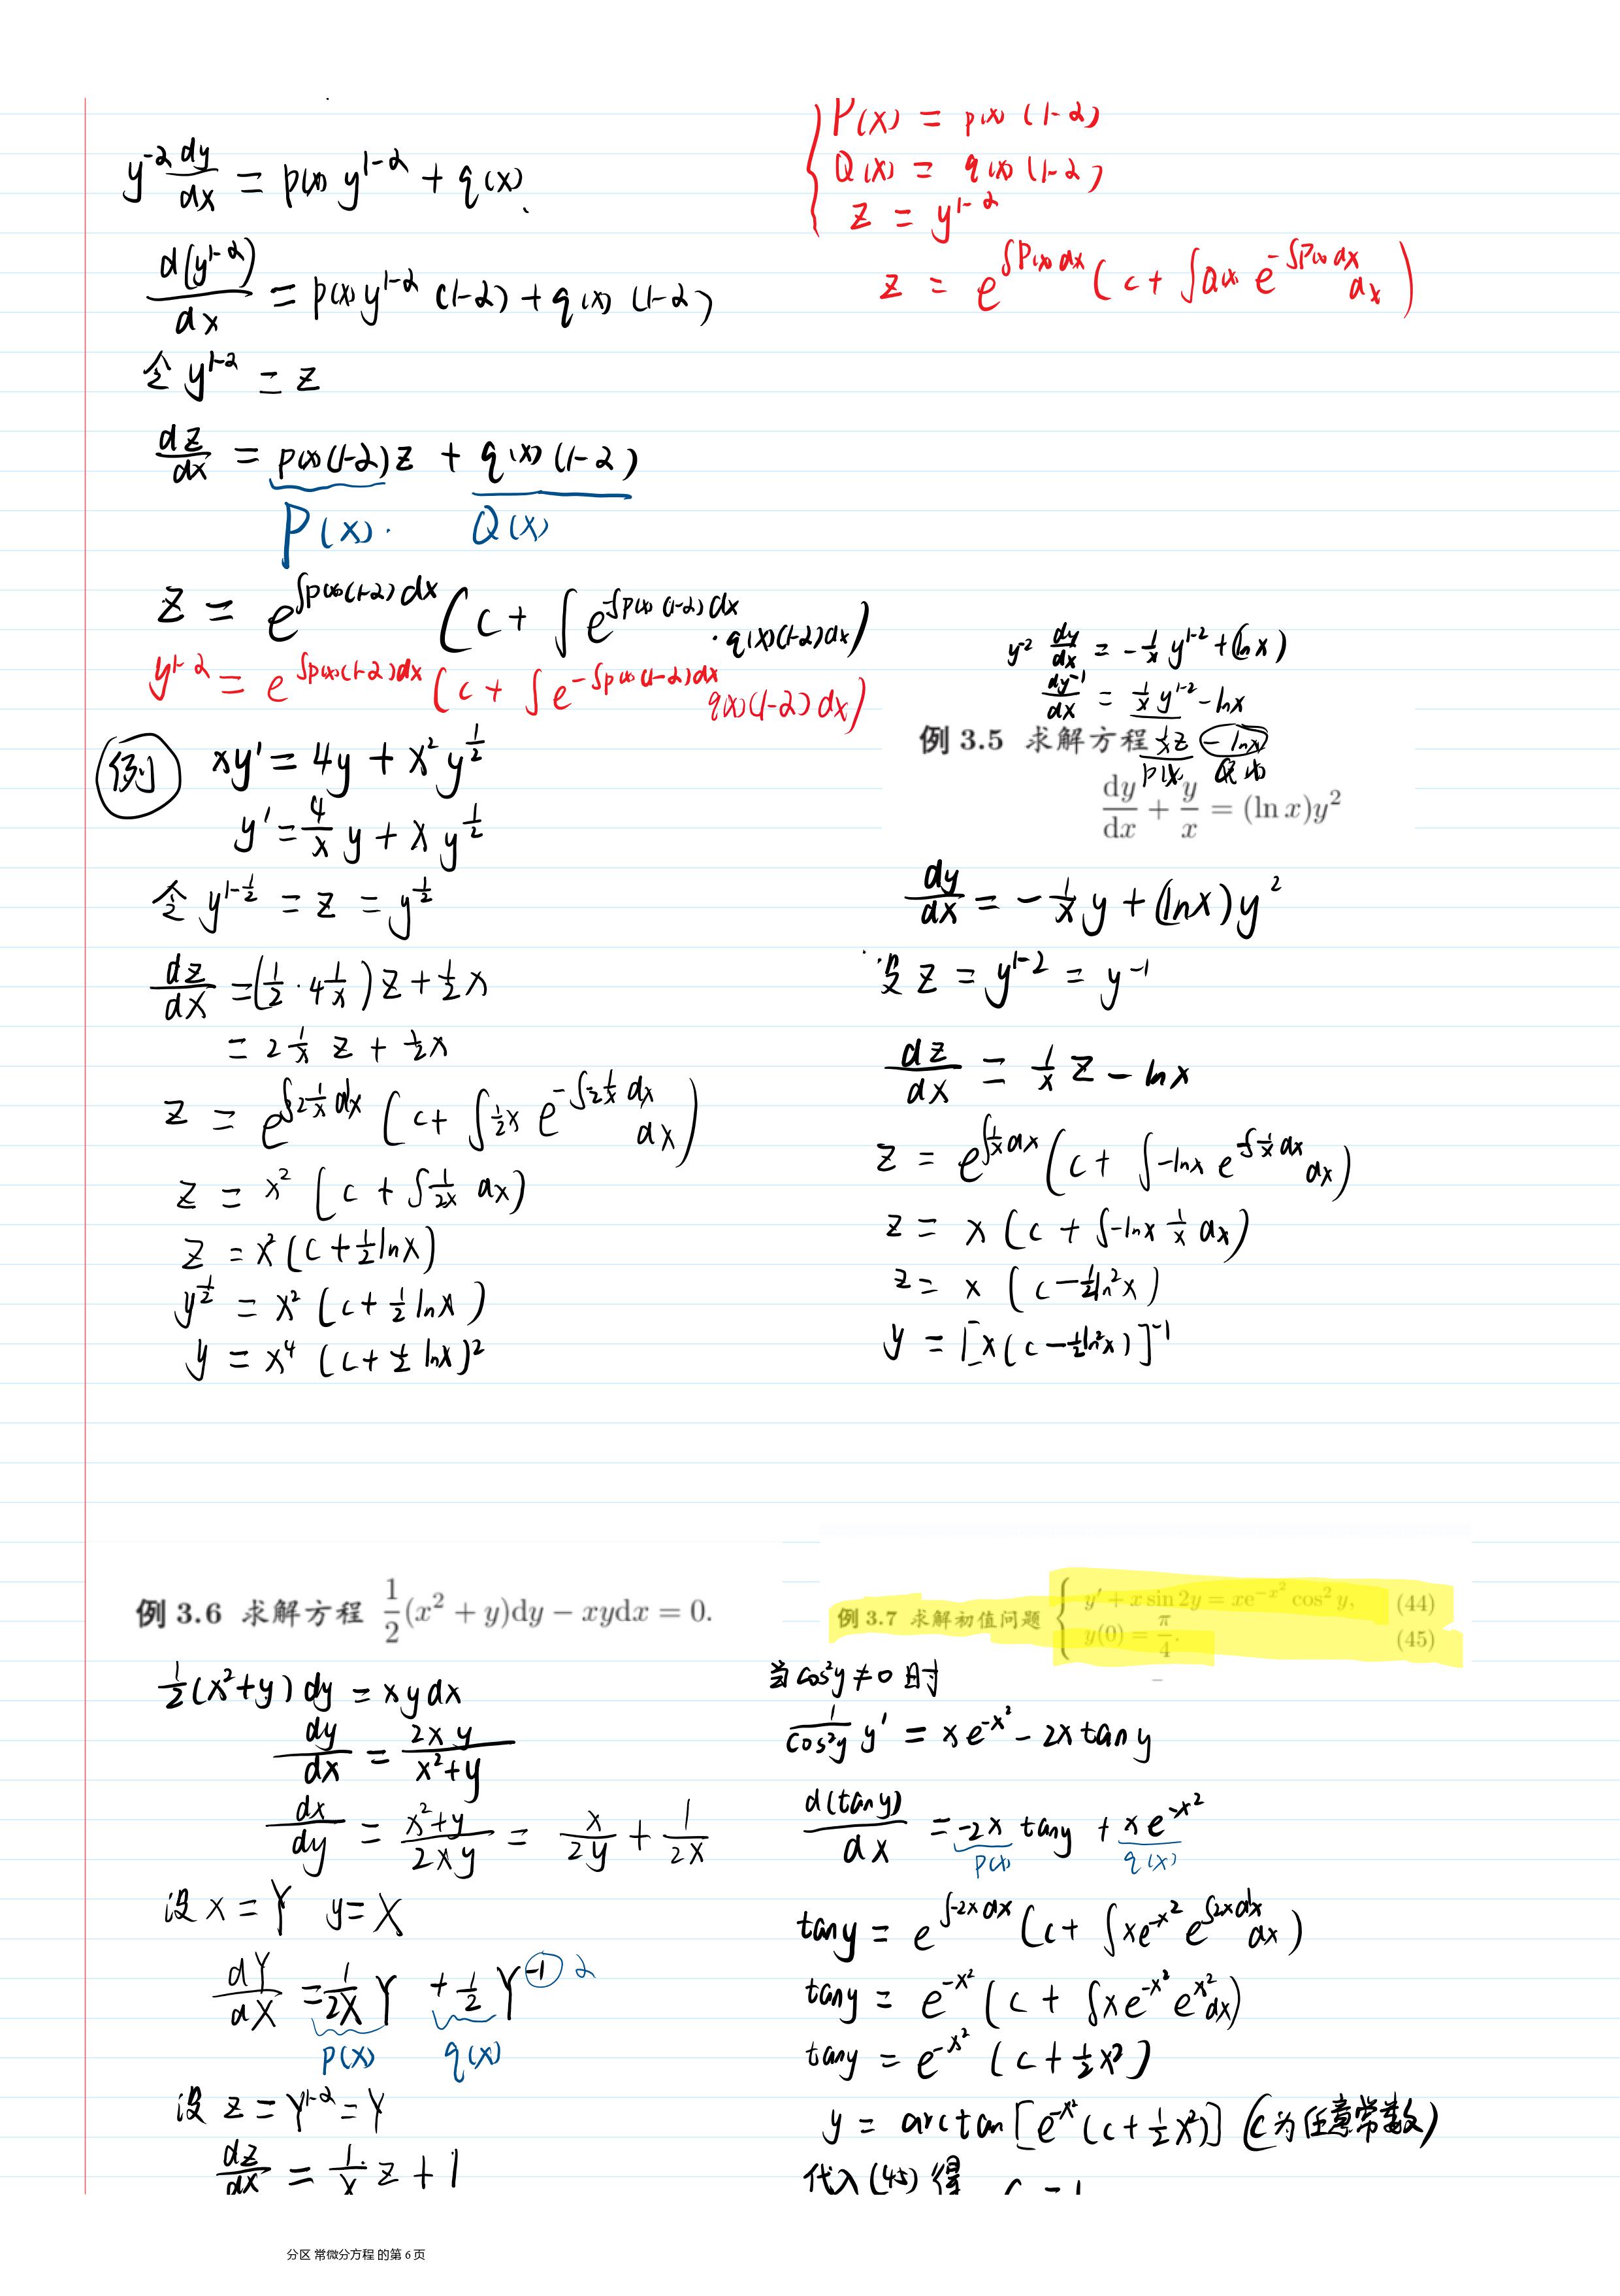 y^{-α} dy/dx = p(x) y^{1-α} + q(x).
d(y^{1-α})/dx = p(x) y^{1-α} (1-α) + q(x) (1-α)
令 y^{1-α} = z
dz/dx = p(x)(1-α) z + q(x) (1-α)
P(x). Q(x)
z = e^{∫p(x)(1-α)dx} (c + ∫e^{-∫p(x)(1-α)dx} · q(x)(1-α)dx)
y^{1-α} = e^{∫p(x)(1-α)dx} (c + ∫e^{-∫p(x)(1-α)dx} q(x)(1-α)dx)
P(x) = p(x) (1-α)
Q(x) = q(x) (1-α)
z = y^{1-α}
z = e^{∫P(x)dx} (c + ∫Q(x) e^{-∫P(x)dx} dx)
例 xy' = 4y + x² y^{1/2}
y' = 4/x y + x y^{1/2}
令 y^{1-1/2} = z = y^{1/2}
dz/dx = (1/2 · 4 1/x) z + 1/2 x
= 2 1/x z + 1/2 x
z = e^{∫2 1/x dx} (c + ∫1/2 x e^{-∫2 1/x dx} dx)
z = x² (c + ∫ 1/2x dx)
z = x² (c + 1/2 lnx)
y^{1/2} = x² (c + 1/2 lnx)
y = x⁴ (c + 1/2 lnx)²
y^{-2} dy/dx = -1/x y^{1-2} + (lnx)
dy^{-1}/dx = 1/x y^{1-2} - lnx
例 3.5 求解方程 1/x z - lnx
P(x) Q(x)
dy/dx + y/x = (ln x)y²
dy/dx = -1/x y + (lnx) y²
设 z = y^{1-2} = y^{-1}
dz/dx = 1/x z - lnx
z = e^{∫1/x dx} (c + ∫-lnx e^{-∫1/x dx} dx)
z = x (c + ∫-lnx 1/x dx)
z = x (c - 1/2 ln²x)
y = [x(c - 1/2 ln²x)]^{-1}
例 3.6 求解方程 1/2(x² + y)dy − xydx = 0.
1/2 (x²+y) dy = xy dx
dy/dx = 2xy/(x²+y)
dx/dy = (x²+y)/2xy = x/2y + 1/2x
设 x = Y y = X
dY/dX = 1/2X Y + 1/2 Y^{-1} α
p(X) q(X)
设 z = Y^{1-α} = Y
dz/dX = 1/X z + 1
例 3.7 求解初值问题 { y' + x sin 2y = xe^{-x²} cos² y, (44)
y(0) = π/4. (45)
当 cos²y ≠ 0 时
1/cos²y y' = xe^{-x²} - 2x tan y
d(tan y)/dx = -2x tan y + xe^{-x²}
p(x) q(x)
tan y = e^{∫-2x dx} (c + ∫xe^{-x²} e^{∫2x dx} dx)
tan y = e^{-x²} (c + ∫xe^{-x²} e^{x²} dx)
tan y = e^{-x²} (c + 1/2 x²)
y = arctan [e^{-x²} (c + 1/2 x²)] (c为任意常数)
代入 (45) 得 c = 1
分区 常微分方程 的第 6 页